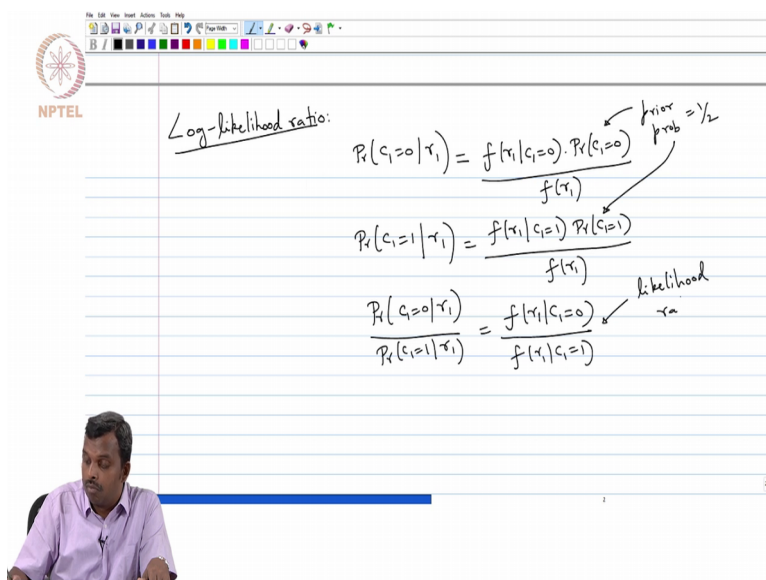 File Edit View Insert Actions Tools Help
Page Width
B I
NPTEL
Log-likelihood ratio:
prior prob = 1/2
Pr(c₁=0 | r₁) = f(r₁|c₁=0). Pr(c₁=0) / f(r₁)
Pr(c₁=1 | r₁) = f(r₁|c₁=1) Pr(c₁=1) / f(r₁)
Pr(c₁=0|r₁) / Pr(c₁=1|r₁) = f(r₁|c₁=0) / f(r₁|c₁=1)
likelihood
ra
2